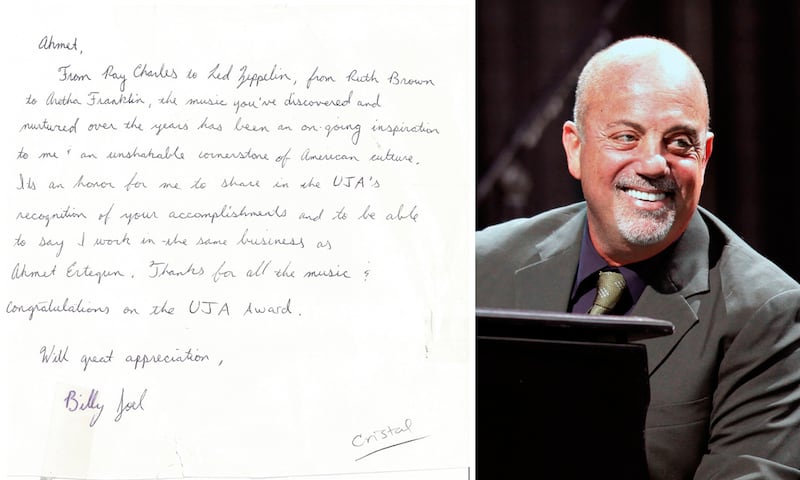 Ahmet,
From Ray Charles to Led Zeppelin, from Ruth Brown
to Aretha Franklin, the music you've discovered and
nurtured over the years has been an on-going inspiration
to me & an unshakable cornerstone of American culture.
Its an honor for me to share in the UJA's
recognition of your accomplishments and to be able
to say I work in the same business as
Ahmet Ertegun. Thanks for all the music &
congratulations on the UJA Award.
With great appreciation,
Billy Joel
Cristal